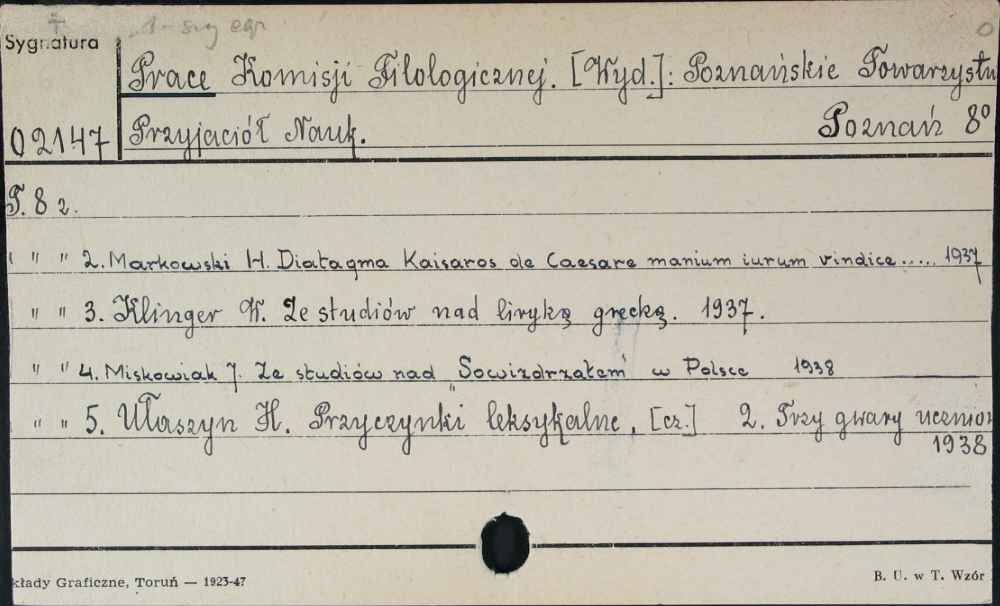 1-szy egz.
Sygnatura
Prace Komisji Filologicznej. [Wyd.]: Poznańskie Towarzystw
02147 Przyjaciół Nauk. Poznań 8°
T. 8 z.
" " " 2. Markowski H. Diatagma Kaisaros de Caesare manium iurum vindice..... 1937
" " 3. Klinger W. Ze studiów nad liryką grecką. 1937.
" " 4. Miskowiak J. Ze studiów nad „Sowizdrzałem" w Polsce 1938
" " 5. Ułaszyn H. Przyczynki leksykalne, [cz.] 2. Trzy gwary uczniow
1938
kłady Graficzne, Toruń — 1923-47
B. U. w T. Wzór